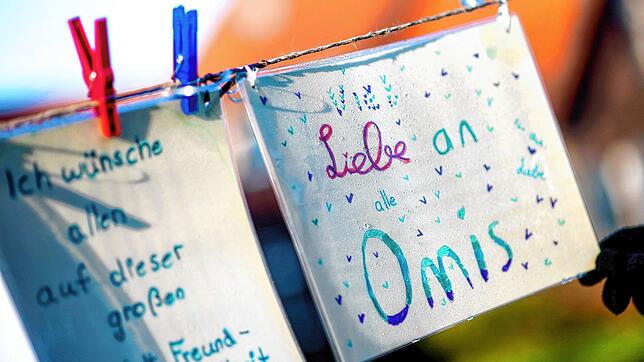 Ich wünsche
allen
auf dieser
großen
Freund-
Viel
Liebe an
alle
Omis